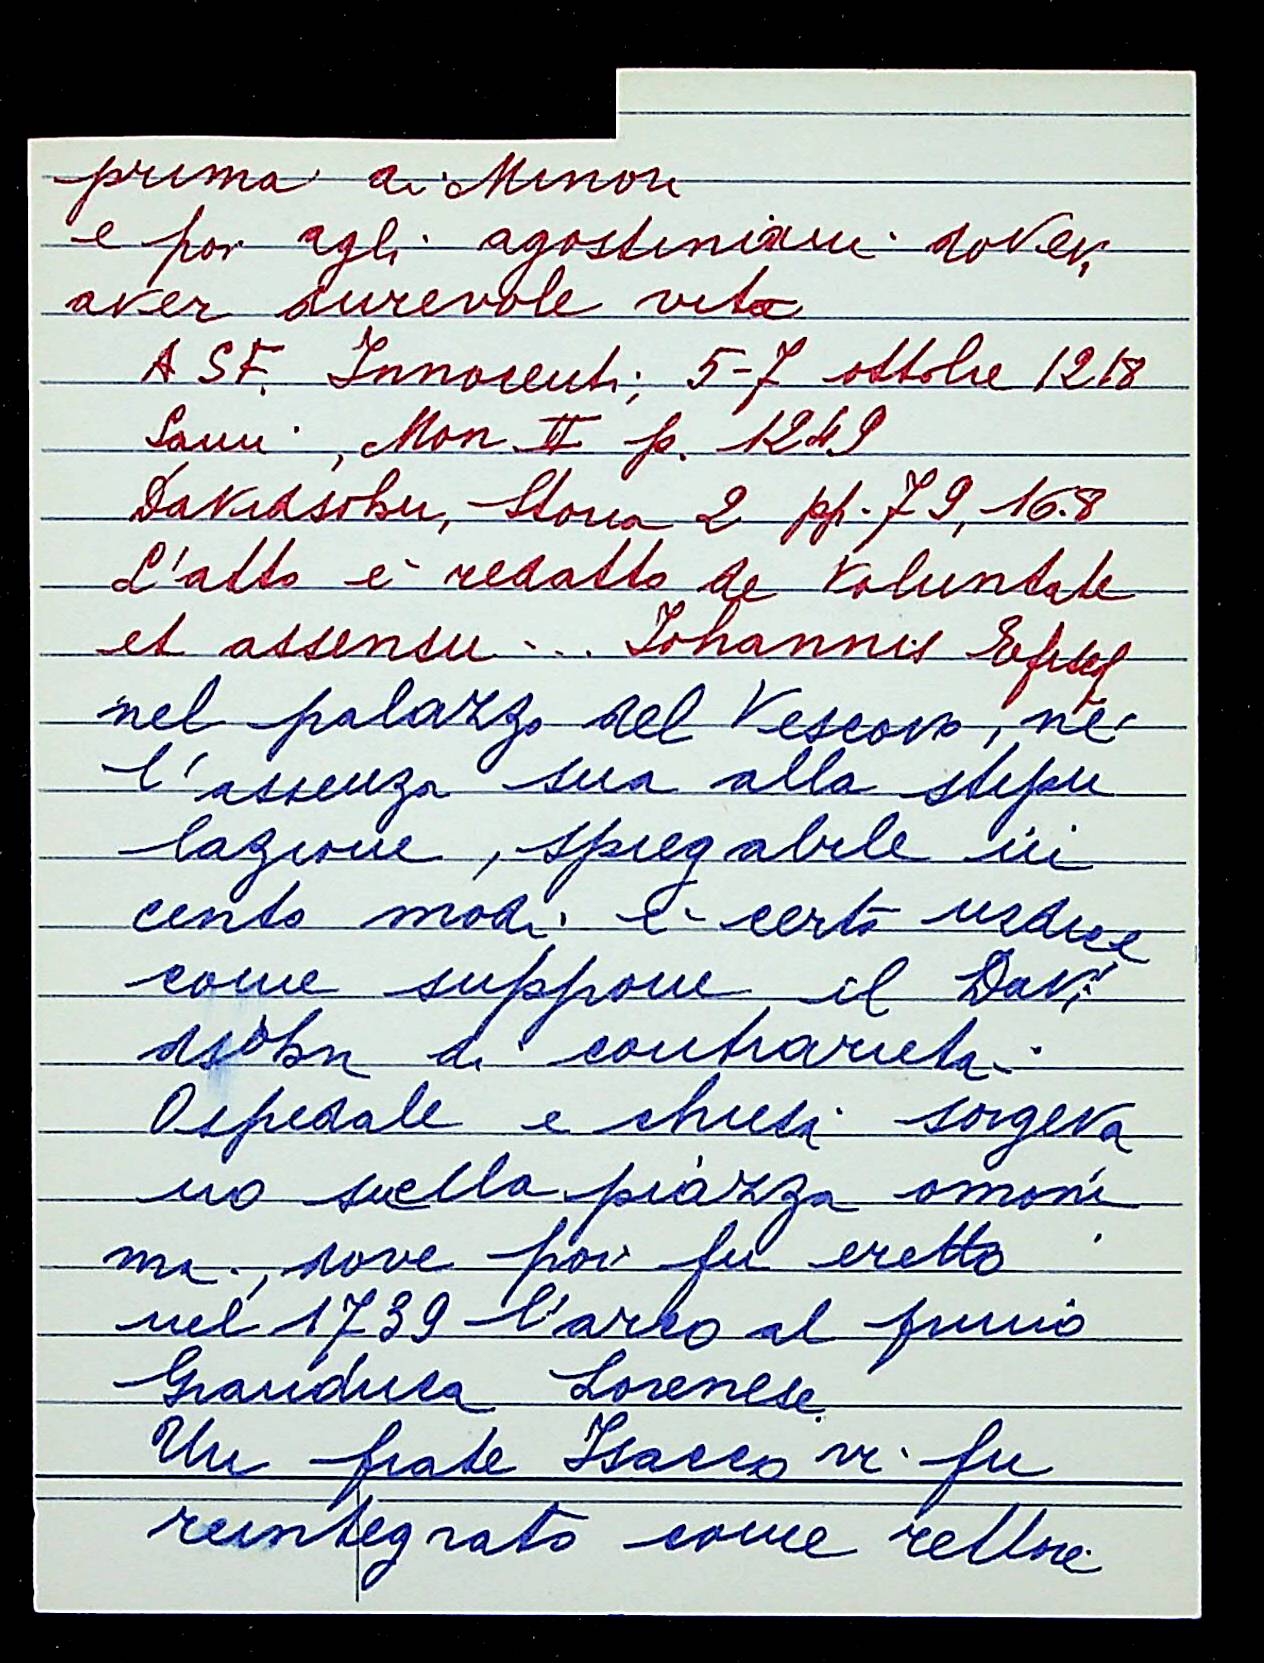 prima ai Minori
e poi agli agostiniani dovev
aver durevole vita
ASF. Innocenti; 5-7 ottobre 1218
Lami, Mon II p. 1249
Davidsohn, Storia 2 pp. 79, 168
L'atto è redatto de Voluntate
et assensu ... Johannis Episc
nel palazzo del Vescovo, nè
l'assenza sua alla stipu
lazione, spiegabile in
cento modi è certo indice
come suppone il Davi
dsohn di contrarietà.
Ospedale e chiesa sorgeva
no sulla piazza omoni
ma, dove poi fu eretto
nel 1739 l'arco al primo
Granduca Lorenese.
Un frate Isacco vi fu
reintegrato come rettore